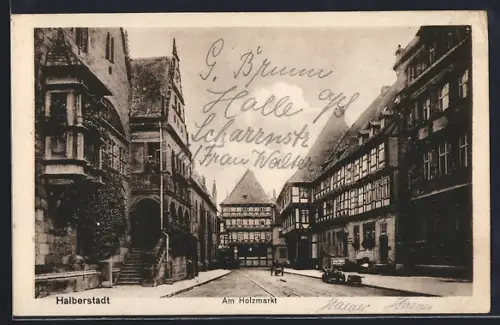 G. Brumm
Halle a/S
Scharrnstr
Frau Walter
Halberstadt
Am Holzmarkt